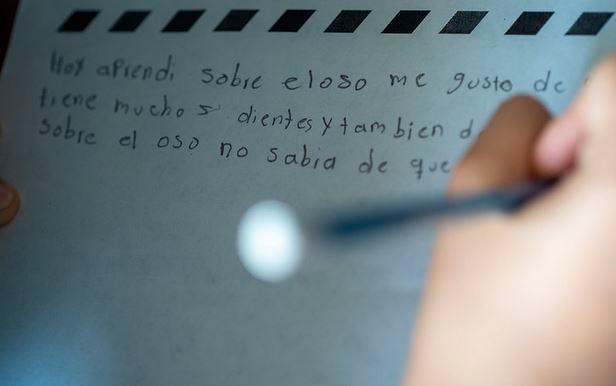 Hoy aprendi sobre eloso me gusto de
tiene mucho s dientes y tambien
sobre el oso no sabia de que